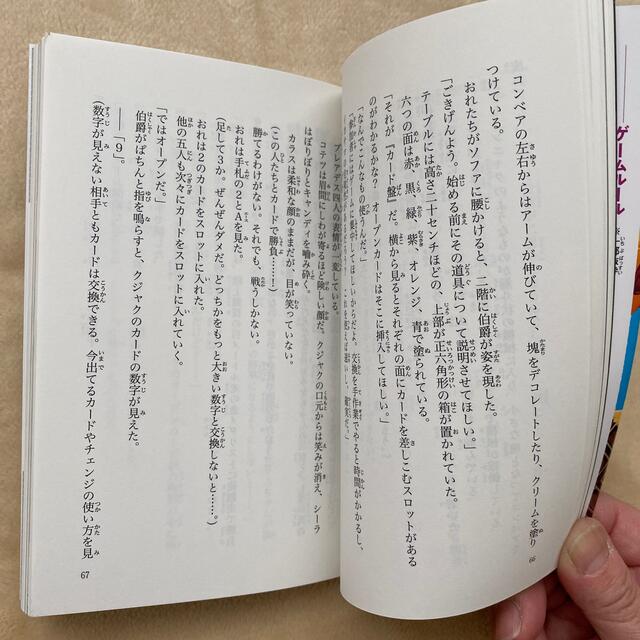 コンベアの左右からはアームが伸びていて、塊をデコレートしたり、クリームを塗り
つけている。
おれたちがソファに腰かけると、二階に伯爵が姿を現した。
「ごきげんよう。始める前にその道具について説明させてほしい。」
テーブルには高さ二十センチほどの、上部が正六角形の箱が置かれていた。
六つの面は赤、黒、緑、紫、オレンジ、青で塗られている。
「それが『カード盤』だ。横から見るとそれぞれの面にカードを差しこむスロットがある
のがわかるかな？　オープンカードはそこに挿入してほしい。」
「なんでこんなもの使うんだ。」
66
プレアデス四人の表情が一変している。
コテツは眉間にしわが寄るほど険しい顔だ。クジャクの口元からは笑みが消え、シーラ
はぼりぼりとキャンディを噛み砕く。
カラスは柔和な顔のままだが、目が笑っていない。
（この人たちとカードで勝負……！）
勝てるわけがない。それでも、戦うしかない。
おれは手札の2とAを見た。
（足して3か。ぜんぜんダメだ。どっちかをもっと大きい数字と交換しないと……。）
おれは2のカードをスロットに入れた。
他の五人も次々にカードをスロットに入れていく。
「ではオープンだ。」
伯爵がぱちんと指を鳴らすと、クジャクのカードの数字が見えた。
――「9」。
（数字が見えない相手ともカードは交換できる。今出てるカードやチェンジの使い方を見
67
ゲームルール